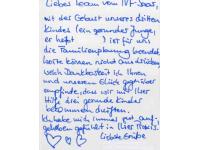 Liebes Team vom IVF-Saar,
mit der Geburt unseres dritten
Kindes (ein gesunder Junge,
er heißt ) ist für uns
die Familienplanung beendet.
Worte können nicht ausdrücken
welch Dankbarkeit ich Ihnen
und unserem Glück gegenüber
empfinde, dass wir mit Ihrer
Hilfe drei gesunde Kinder
bekommen durften.
Ich habe mich immer gut auf-
gehoben gefühlt in Ihrer Praxis.
Liebste Grüße